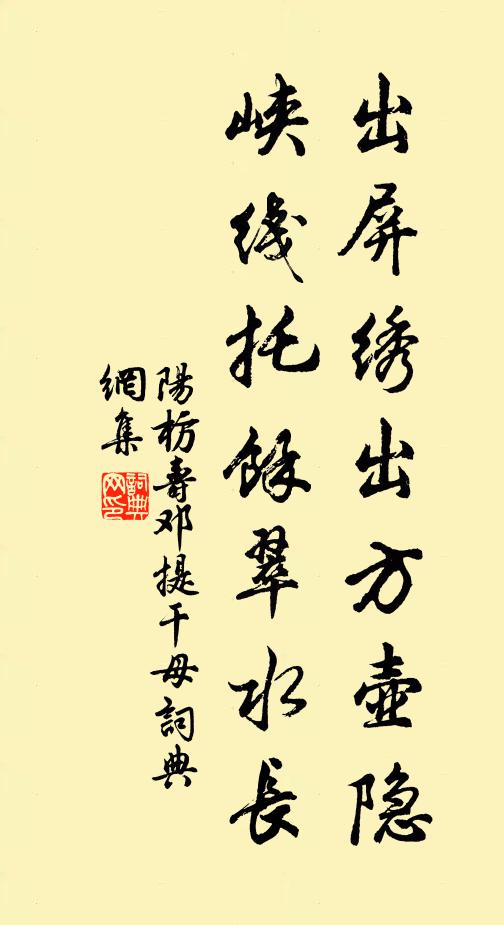 出屏绣出方壶隐
峡线托馀翠水長
陽枋壽邓提干母詞典
網集
詞典
网印